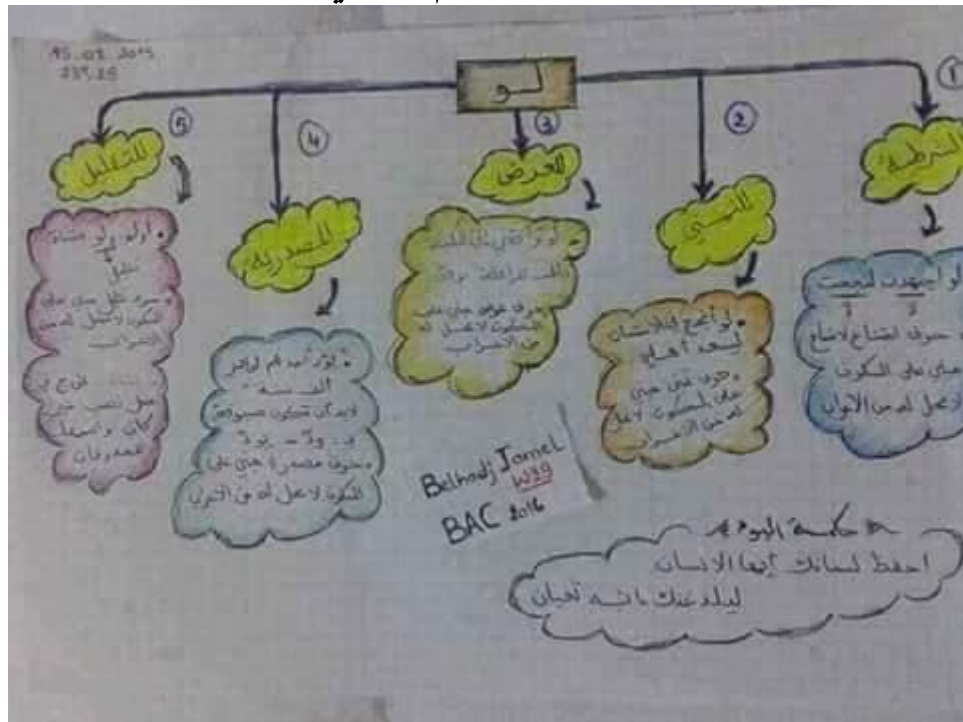 لو
①
الشرطية
لو اجتهدت لنجحت
حرف امتناع لامتناع
مبني على السكون
لا محل له من الاعراب
②
للتمني
لو أنجح في الامتحان
ليسعد أهلي
حرف تمني مبني
على السكون لا محل
له من الاعراب
③
للعرض
لو
حرف عرض مبني على
السكون لا محل له
من الاعراب
④
المصدرية
لا بد أن تكون مسبوقة
بـ ودّ - يودّ
حرف مصدرية مبني على
السكون لا محل له من الاعراب
⑤
للتقليل
أولم ولو بشاة
تقليل
حرف تقليل مبني على
السكون لا محل له من
الاعراب
محل نصب خبر
كان واسمها
محذوفان
Belhadj Jamel
W39
BAC 2016
حكمة اليوم
احفظ لسانك أيها الانسان
ليلدغنك انه ثعبان